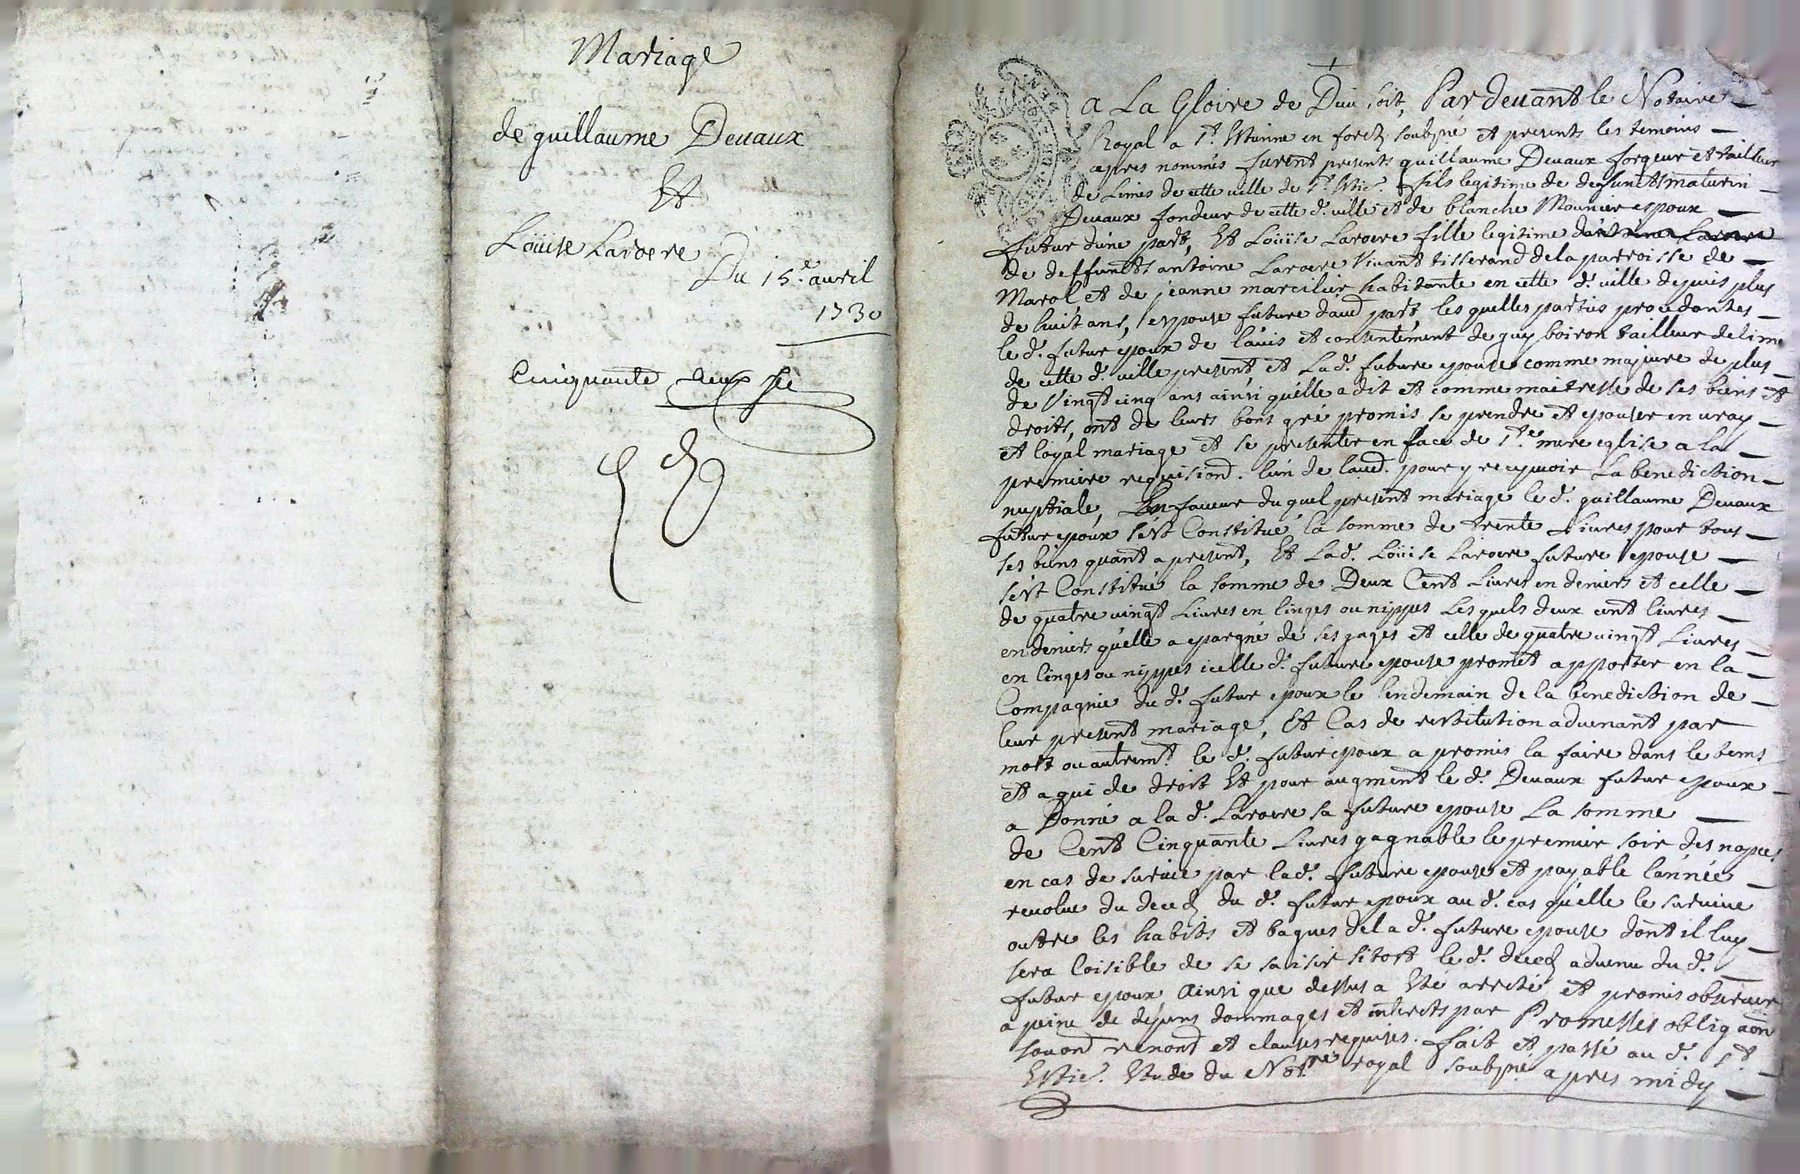 Mariage
de guillaume Devaux
Et
Loüise Laroere
Du 15e. avril
1730
Cinquante deux
A La Gloire de Dieu soit, Pardevant le Notaire
Royal a St. Etienne en forez soubzné et presents les temoins
apres nommés furent presents guillaume Devaux forgeur et tailleur
de Limes de cette ville de St. Etie. fils legitime de deffunct maturin
Devaux fondeur de cette d. ville et de blanche Mounier epoux
futur d'une part, Et Loüise Laroere fille legitime
de deffunct antoine Laroere vivant tisserand de la parroisse de
Marol et de jeanne marcilier habitante en cette d. ville depuis plus
de huit ans, epouse future d'aud. part lesquelles parties procedantes
le d. futur epoux de l'avis et consentement de guy boiron tailleur de lime
de cette d. ville present, et Lad. future epouse comme majeure de plus
de vingt cinq ans ainsi quélle a dit et comme maitresse de ses biens et
droits, ont de leurs bons gré promis se prendre et epouser en vray
et loyal mariage et se presenter en face de Ste. mere eglise a la
premiere requisiond. lún de laud. pour y reçevoir La benediction
nuptiale, En faveur du quel present mariage le d. guillaume Devaux
futur epoux sést Constitué la somme de trente Livres pour tous
ses biens quant a present, Et Lad. Loüise Laroere future epouse
sést Constitué la somme de Deux Cent Livres en deniers et celle
de quatre vingt Livres en linges ou nippes Lesquels deux cent livres
en deniers quélle a epargné de ses gages et celle de quatre vingt Livres
en linges ou nippes icelle d. future epouse promet apporter en la
Compagnie du d. futur epoux le lendemain de la benediction de
leur present mariage, Et Cas de restitution advenant par
mort ou autremt. le d. futur epoux a promis la faire dans le tems
et a qui de droit Et pour augment le d. Devaux futur epoux
a Donné a la d. Laroere sa future epouse La somme
de Cent Cinquante Livres gagnable le premier soir des nopces
en cas de survie par lad. future epouse et payable lánnée
revolue du decez du d. futur epoux au d. cas quélle le survive
outre les habits et bagues de la d. future epouse dont il luy
sera loisible de se saisir sitost le d. decez advenu du d.
futur epoux, Ainsi que dessus a Eté arreté et promis observer
a peine de depens dommages et interets par Promesses obligaon
soumd. renond. et clauses requises. fait et passé au d. St.
Etie. Etude du Notre. royal soubzné apres midy